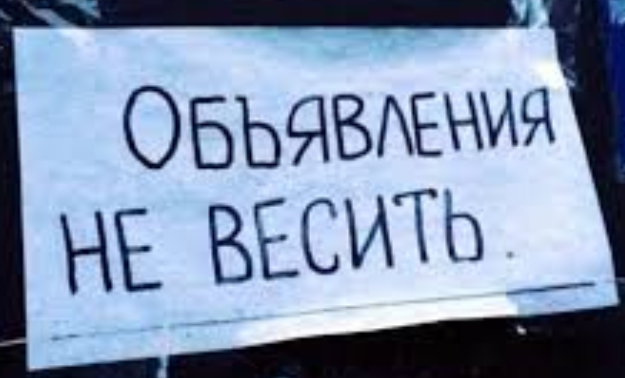 ОБЪЯВЛЕНИЯ
НЕ ВЕСИТЬ.